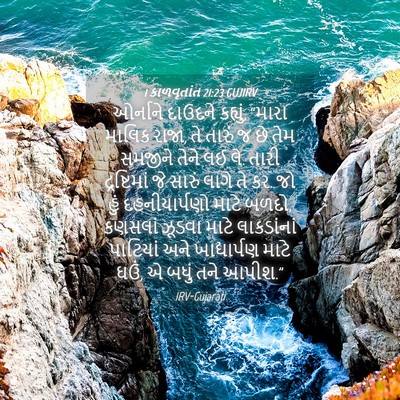 1 કાળવૃત્તાંત 21:23 GUJIRV
ઓર્નાને દાઉદને કહ્યું, "મારા
માલિક રાજા, તે તારું જ છે તેમ
સમજીને તેને લઈ લે. તારી
દ્રષ્ટિમાં જે સારું લાગે તે કર. જો
હું દહનીયાર્પણો માટે બળદો,
કણસલાં ઝૂડવા માટે લાકડાંનાં
પાટિયાં અને ખાદ્યાર્પણ માટે
ઘઉં, એ બધું તને આપીશ."
IRV-Gujarati